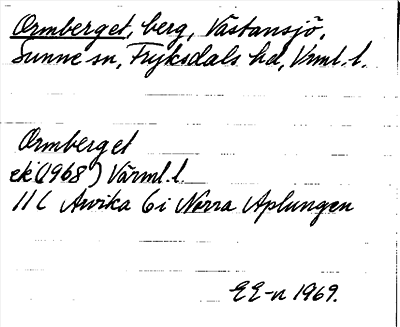 Ormberget, berg, Västansjö,
Sunne sn, Fryksdals hd, Vrml. l.
Ormberget
ek (1968) Värml. l.
11 C Arvika 6i Norra Aplungen
EE-n 1969.